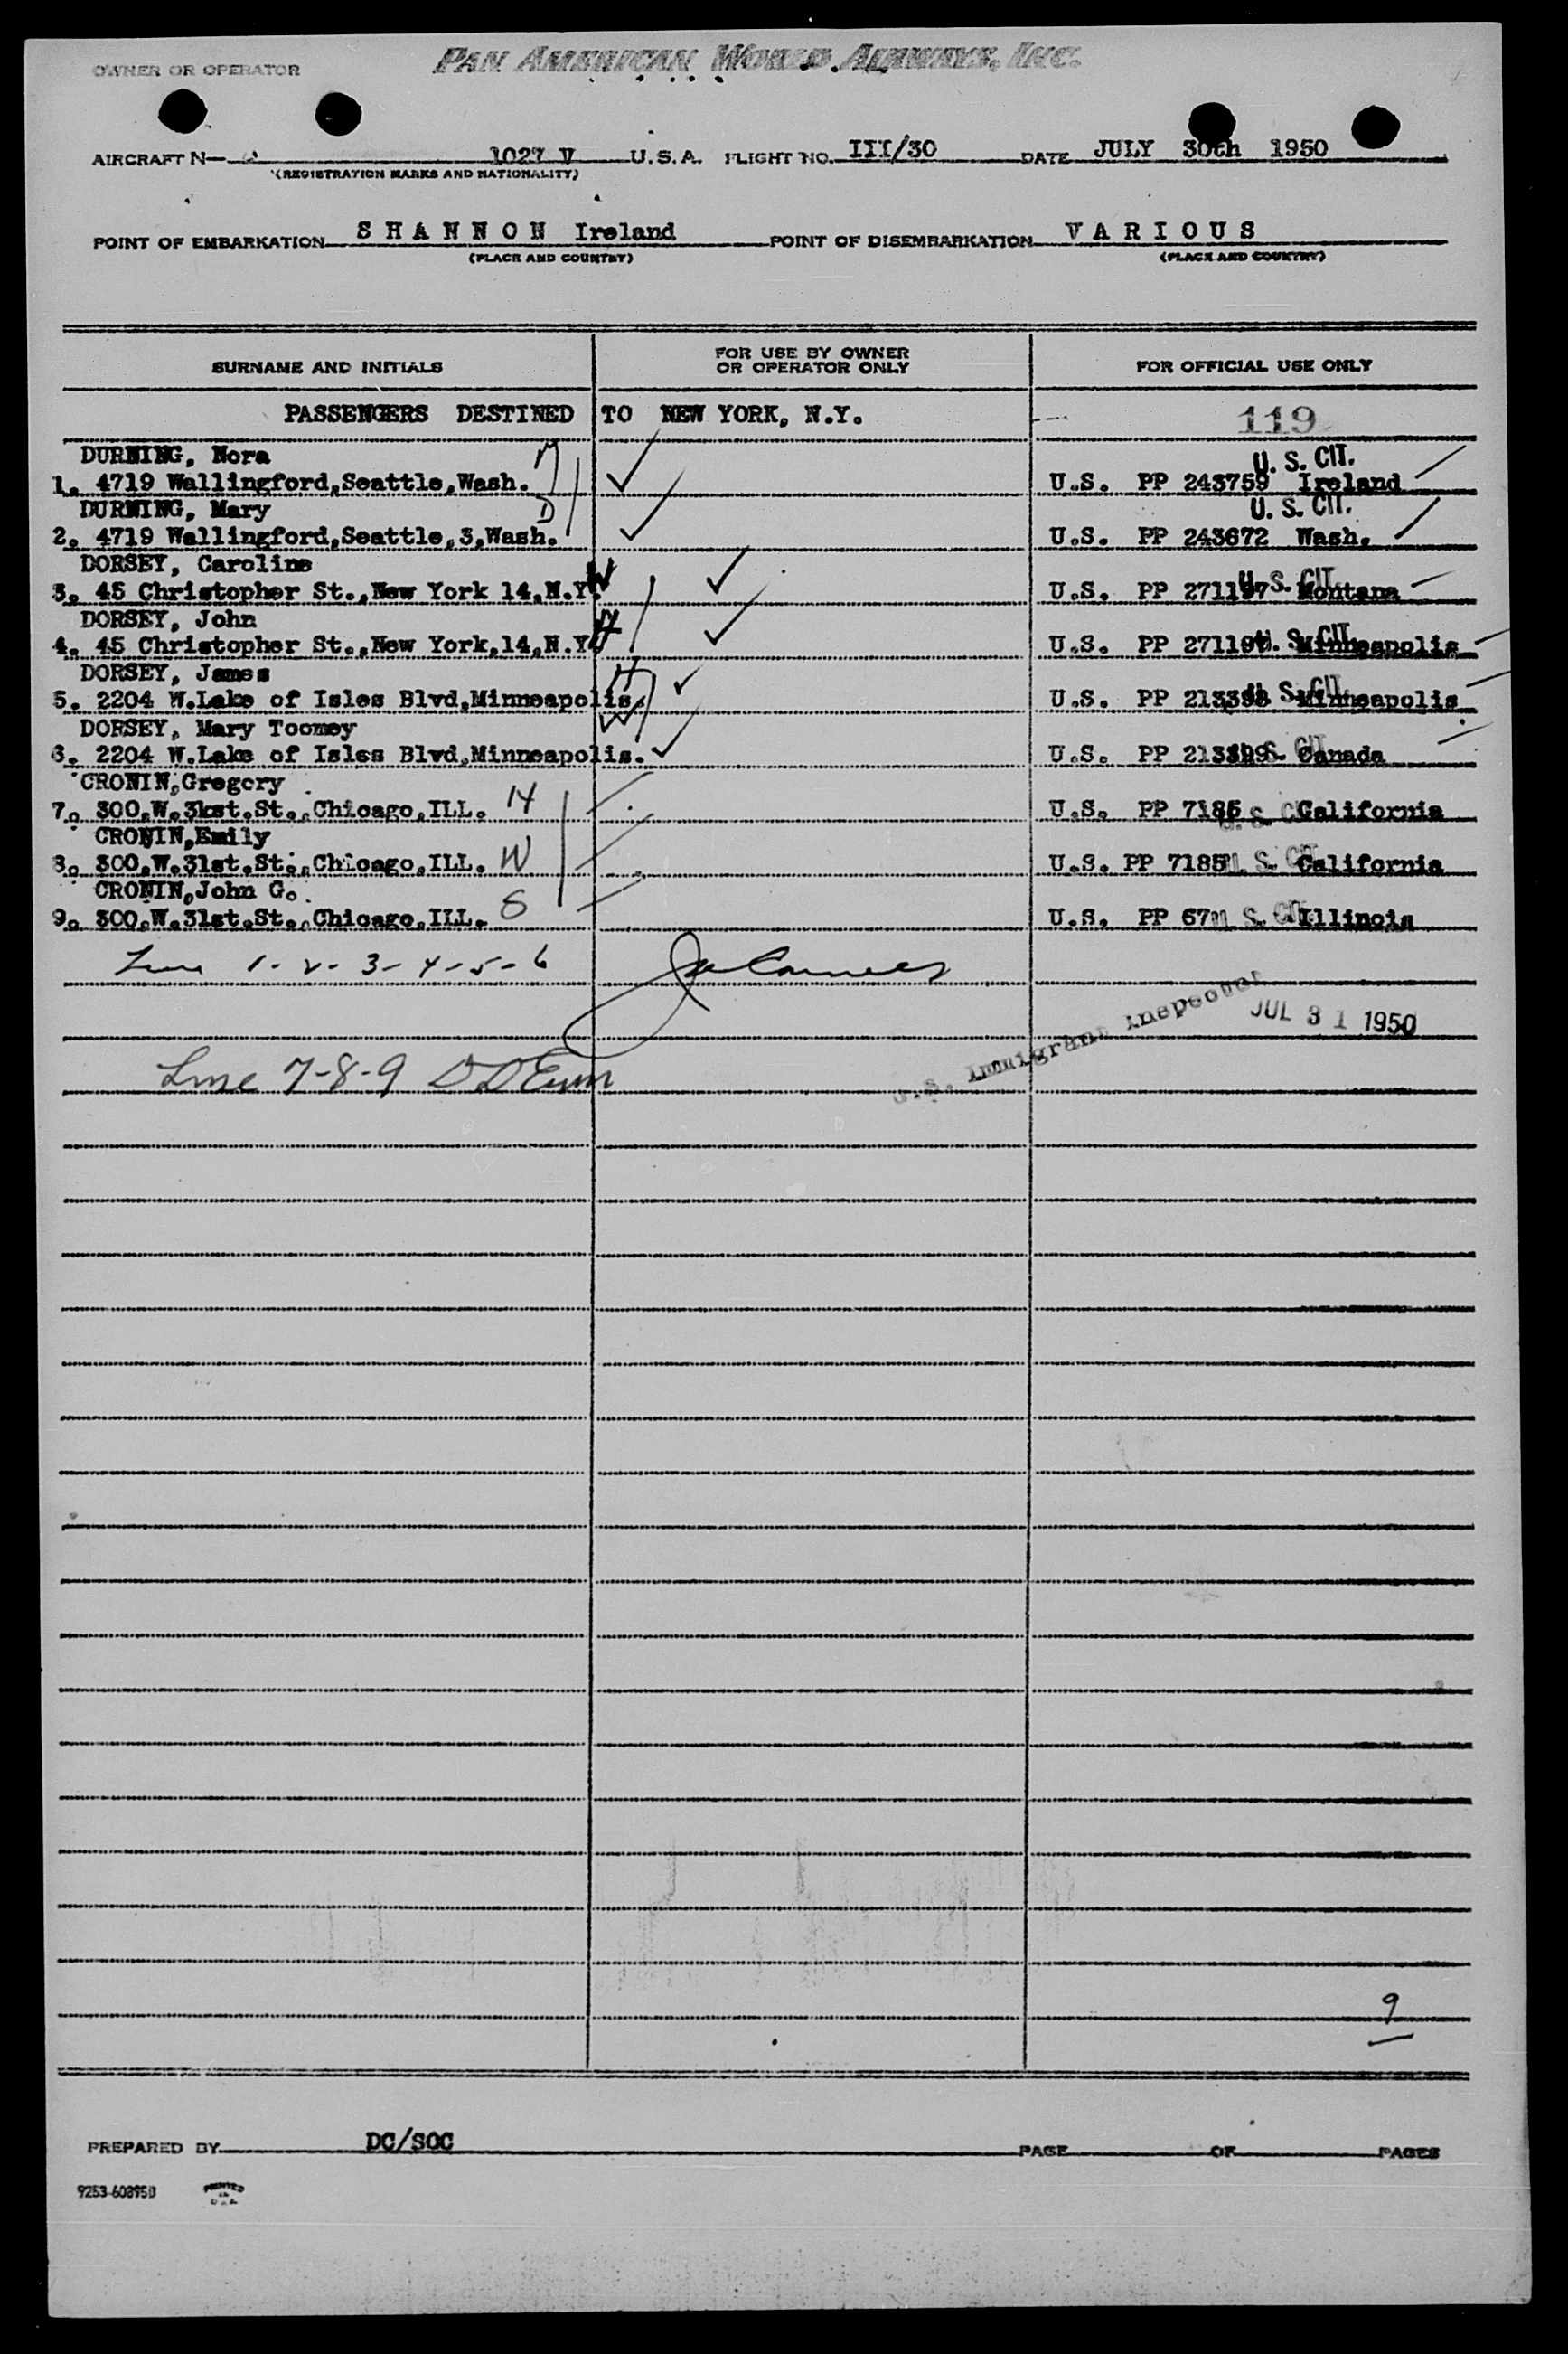 OWNER OR OPERATOR PAN AMERICAN WORLD AIRWAYS, INC.
AIRCRAFT N— 1027 V U.S.A. FLIGHT NO. III/30 DATE JULY 30th 1950
(REGISTRATION MARKS AND NATIONALITY)
POINT OF EMBARKATION S H A N N O N Ireland POINT OF DISEMBARKATION V A R I O U S
(PLACE AND COUNTRY) (PLACE AND COUNTRY)
SURNAME AND INITIALS FOR USE BY OWNER OR OPERATOR ONLY FOR OFFICIAL USE ONLY
PASSENGERS DESTINED TO NEW YORK, N.Y. 119
DURNING, Nora M U. S. CIT.
1. 4719 Wallingford,Seattle,Wash. U.S. PP 243759 Ireland
DURNING, Mary D U. S. CIT.
2. 4719 Wallingford,Seattle,3,Wash. U.S. PP 243672 Wash.
DORSEY, Caroline W U. S. CIT.
3. 45 Christopher St.,New York 14,N.Y. U.S. PP 271197 Montana
DORSEY, John H U. S. CIT.
4. 45 Christopher St.,New York,14,N.Y. U.S. PP Minneapolis
DORSEY, James H U. S. CIT.
5. 2204 W.Lake of Isles Blvd,Minneapolis. U.S. PP 213398 Minneapolis
DORSEY, Mary Toomey W U. S. CIT.
6. 2204 W.Lake of Isles Blvd,Minneapolis. U.S. PP 213399 Canada
CRONIN,Gregory
7. 300.W.3kst.St.,Chicago,ILL. H U.S. PP 7186 U. S. CIT. California
CRONIN,Emily
8. 300.W.31st.St.,Chicago,ILL. W U.S. PP 7185 U. S. CIT. California
CRONIN,John G.
9. 300.W.31st.St.,Chicago,ILL. S U.S. PP U. S. CIT. Illinois
Line 1-2-3-4-5-6
U.S. Immigrant Inspector JUL 31 1950
Line 7-8-9
9
PREPARED BY DC/SOC PAGE OF PAGES
9253-608950 PRINTED IN U.S.A.